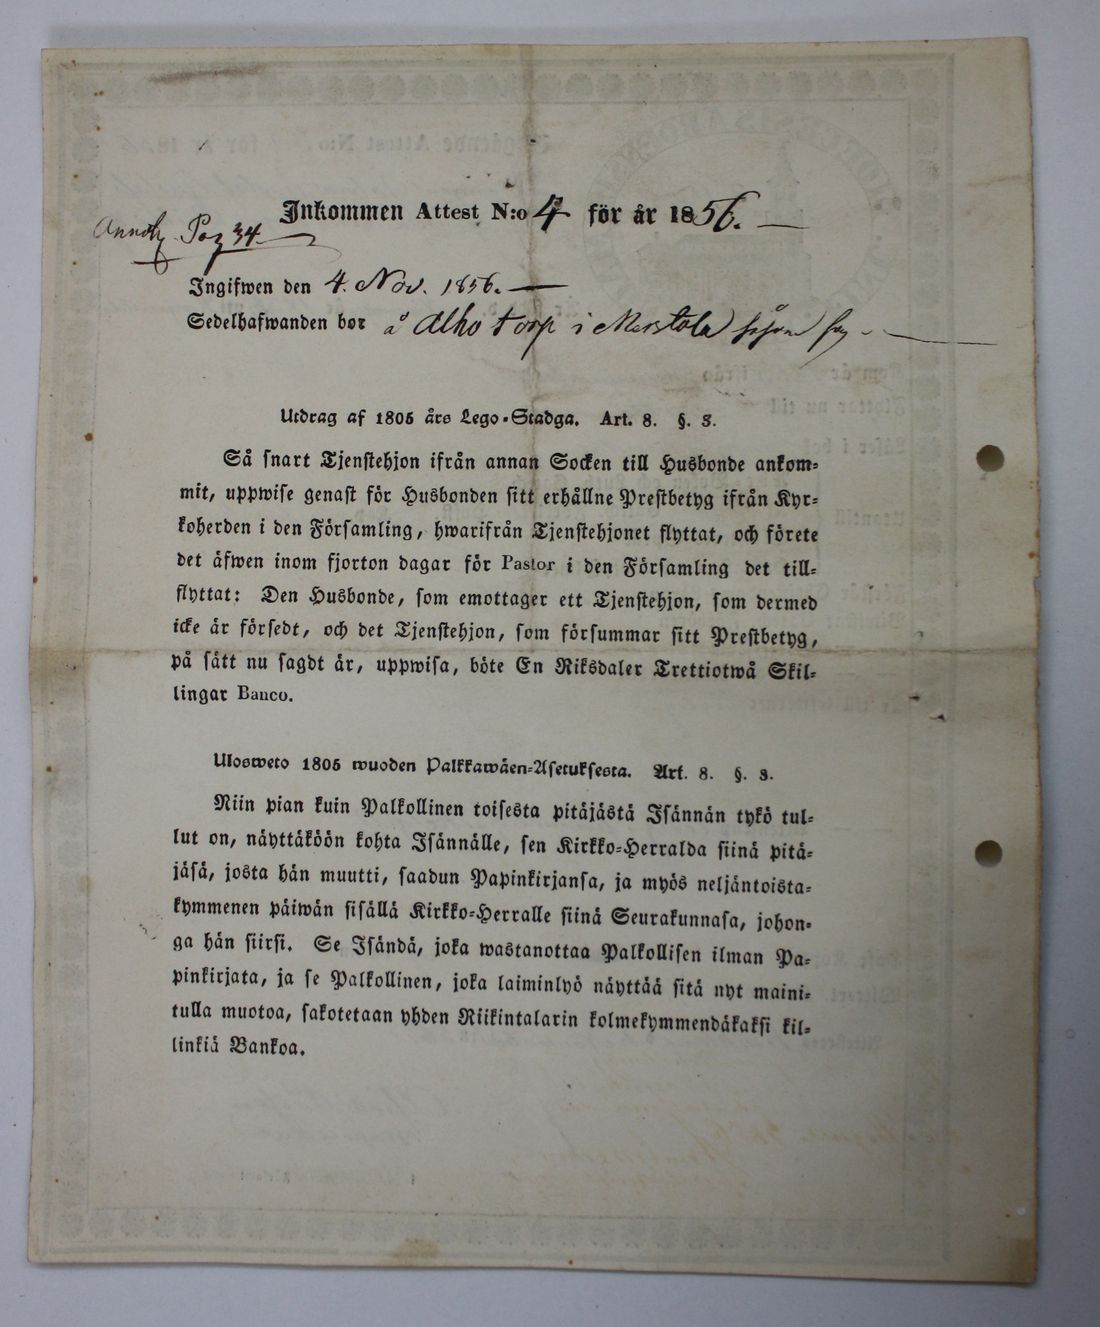 Inkommen Attest N:o 4 för år 1856.
Annoty. Pag 34
Ingifwen den 4. Nov. 1856.
Sedelhafwanden bor å Alho torp i
Utdrag af 1805 års Lego-Stadga. Art. 8. §. 3.
Så snart Tjenstehjon ifrån annan Socken till Husbonde ankom-
mit, uppwise genast för Husbonden sitt erhållne Prestbetyg ifrån Kyr-
koherden i den Församling, hwarifrån Tjenstehjonet flyttat, och förete
det äfwen inom fjorton dagar för Pastor i den Församling det till-
flyttat: Den Husbonde, som emottager ett Tjenstehjon, som dermed
icke är försedt, och det Tjenstehjon, som försummar sitt Prestbetyg,
på sätt nu sagdt är, uppwisa, böte En Riksdaler Trettiotwå Skil-
lingar Banco.
Ulosweto 1805 wuoden Palkkawäen-Asetuksesta. Art. 8. §. 3.
Niin pian kuin Palkollinen toisesta pitäjästä Isännän tykö tul-
lut on, näyttäköön kohta Isännälle, sen Kirkko-Herralda siinä pitä-
jäsä, josta hän muutti, saadun Papinkirjansa, ja myös neljäntoista-
kymmenen päiwän sisällä Kirkko-Herralle siinä Seurakunnasa, johon-
ga hän siirsi. Se Isändä, joka wastanottaa Palkollisen ilman Pa-
pinkirjata, ja se Palkollinen, joka laiminlyö näyttää sitä nyt maini-
tulla muotoa, sakotetaan yhden Riikintalarin kolmekymmendäkaksi kil-
linkiä Bankoa.